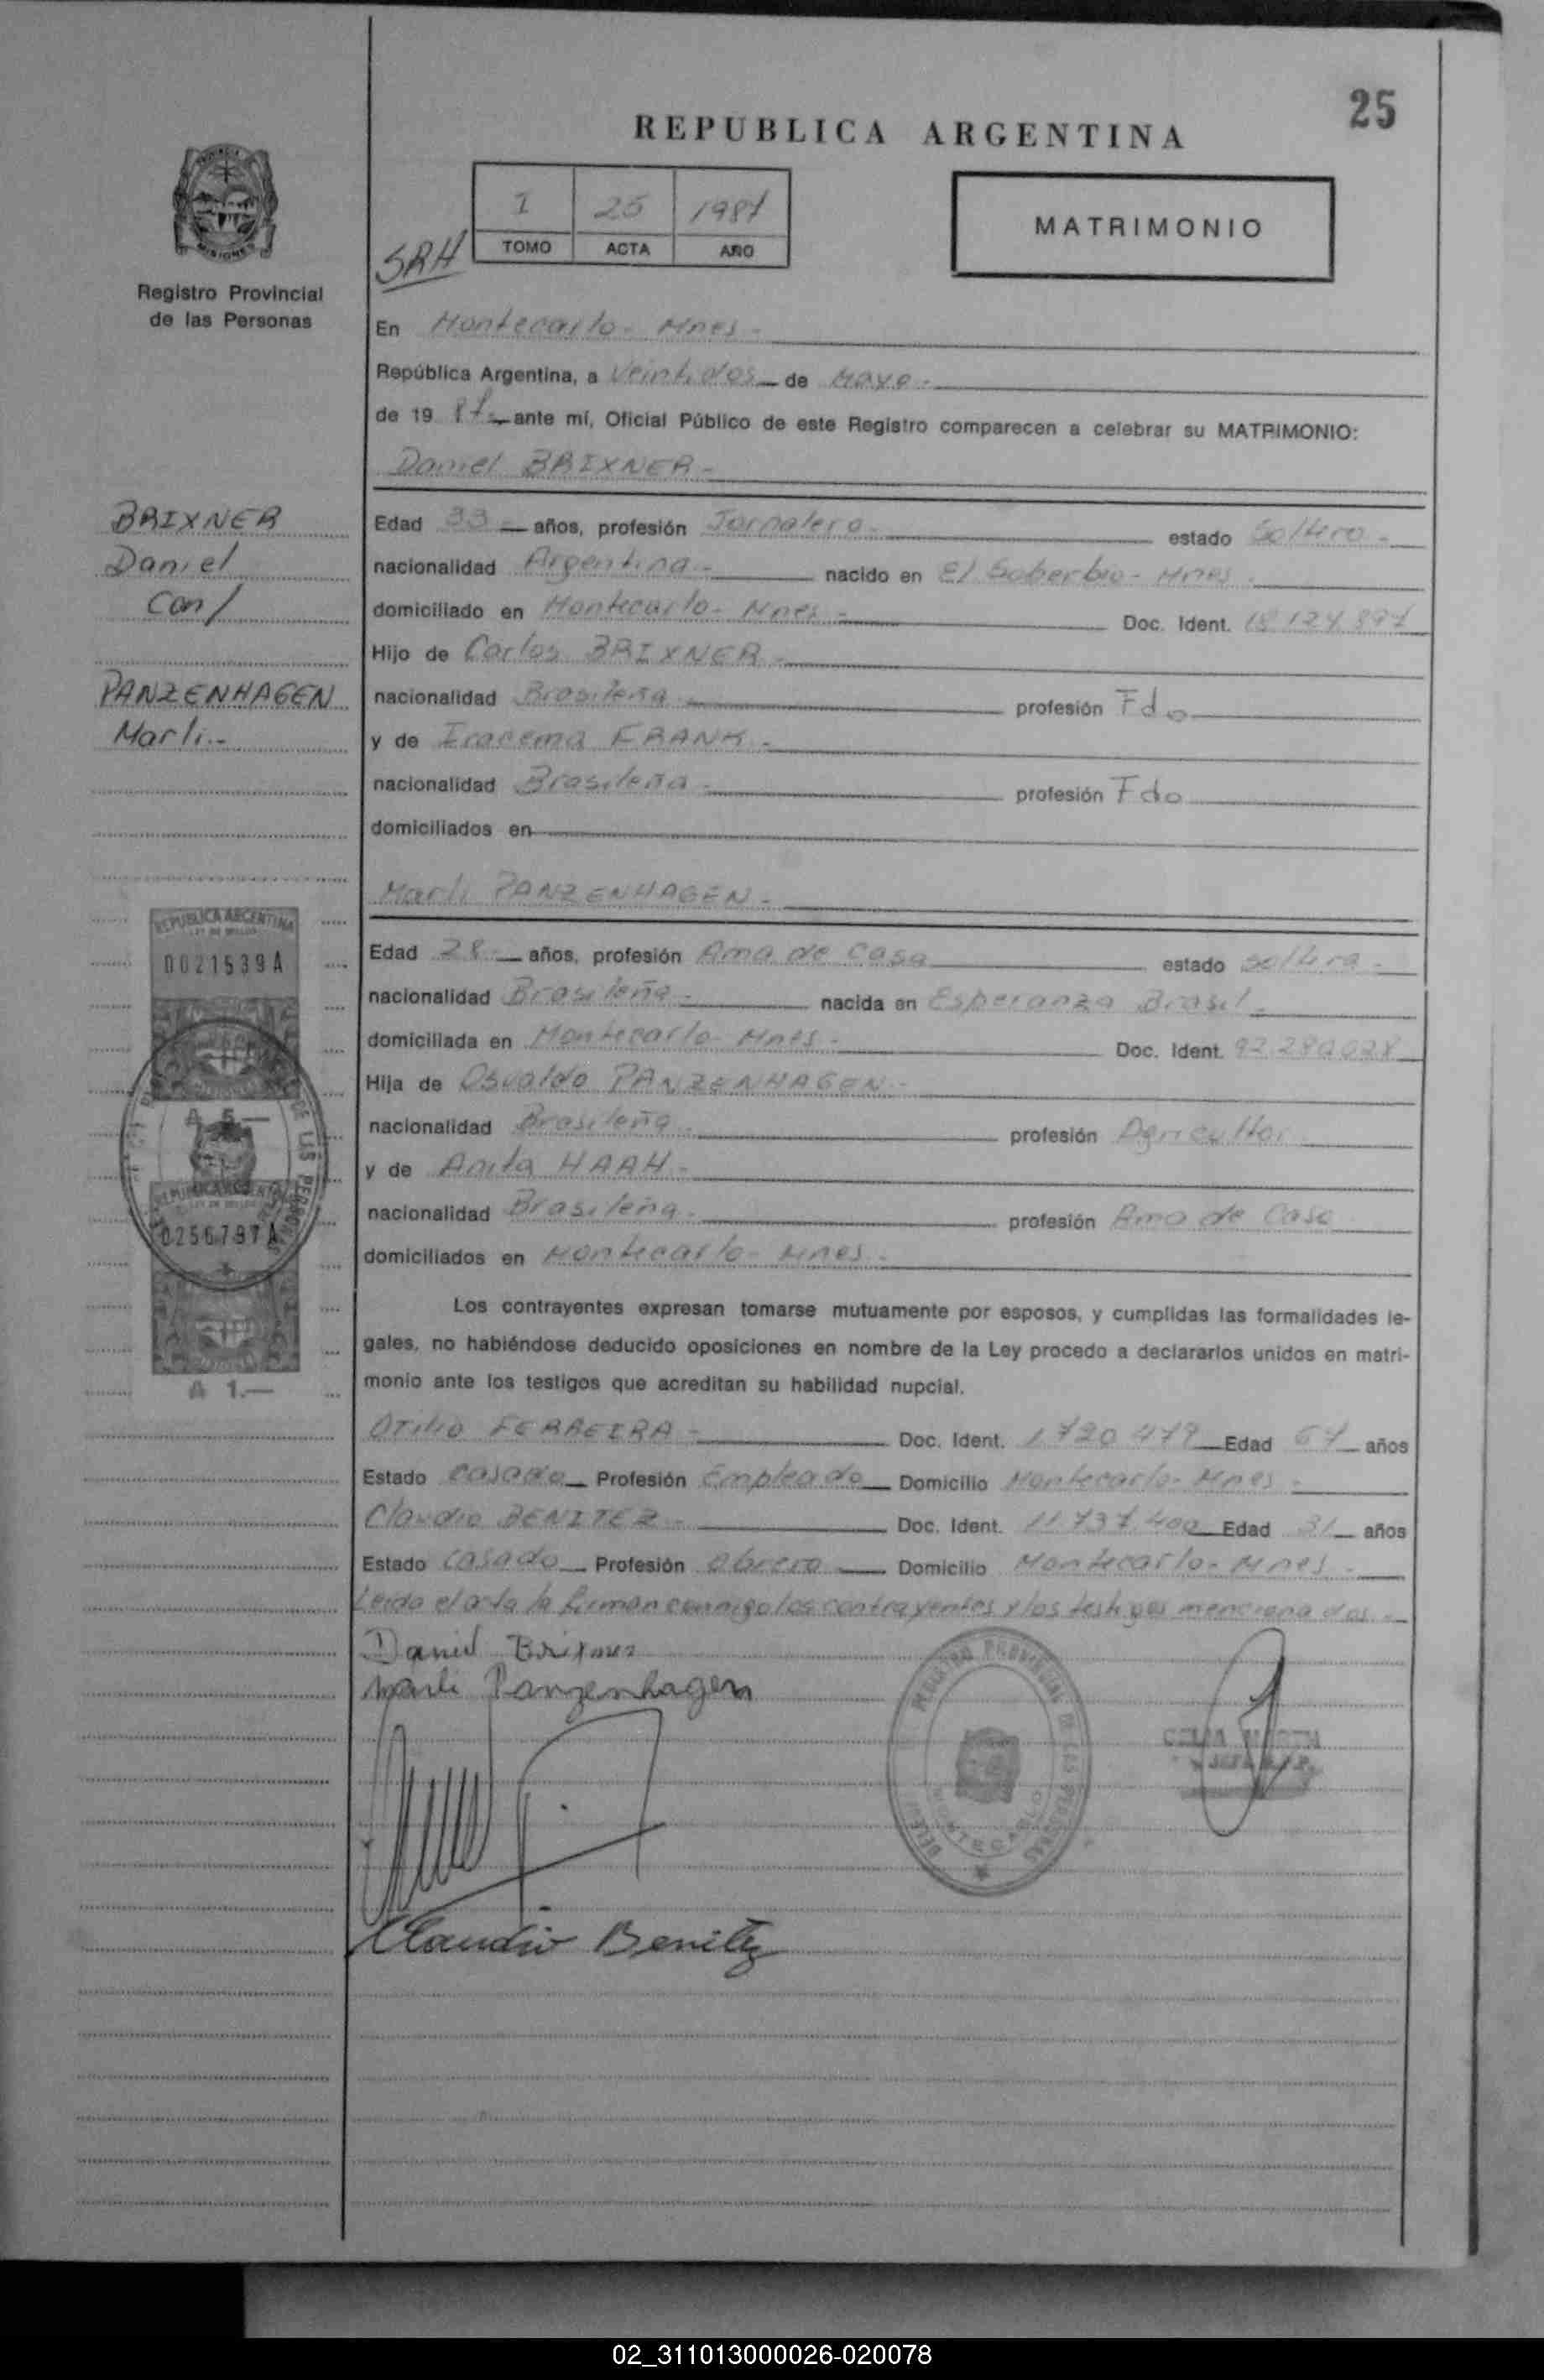 25
REPUBLICA ARGENTINA
I 25 1987
TOMO ACTA AÑO
MATRIMONIO
SRH
Registro Provincial
de las Personas
En Montecarlo - Mnes -
República Argentina, a Veintidos de Mayo -
de 19 87 - ante mí, Oficial Público de este Registro comparecen a celebrar su MATRIMONIO:
Daniel BRIXNER -
BRIXNER
Daniel
Con/
PANZENHAGEN
Marli.-
Edad 33 - años, profesión Jornalero - estado Soltero -
nacionalidad Argentina - nacido en El Soberbio - Mnes -
domiciliado en Montecarlo - Mnes - Doc. Ident. 18.124.897
Hijo de Carlos BRIXNER -
nacionalidad Brasileña - profesión Fdo
y de Iracema FRANK -
nacionalidad Brasileña - profesión Fdo
domiciliados en
Marli PANZENHAGEN -
Edad 28 - años, profesión Ama de Casa estado soltera -
nacionalidad Brasileña - nacida en Esperanza Brasil -
domiciliada en Montecarlo - Mnes - Doc. Ident. 92.280.028
Hija de Osvaldo PANZENHAGEN -
nacionalidad Brasileña - profesión Agricultor -
y de Anita HAAH -
nacionalidad Brasileña - profesión Ama de Casa
domiciliados en Montecarlo - Mnes -
REPUBLICA ARGENTINA
0021539A
A 5.—
REPUBLICA ARGENTINA
0256797A
A 1.—
Los contrayentes expresan tomarse mutuamente por esposos, y cumplidas las formalidades le-
gales, no habiéndose deducido oposiciones en nombre de la Ley procedo a declararlos unidos en matri-
monio ante los testigos que acreditan su habilidad nupcial.
Otilio FERREIRA - Doc. Ident. 1.720.479 Edad 67 años
Estado casado Profesión Empleado Domicilio Montecarlo - Mnes -
Claudio BENITEZ - Doc. Ident. 11.737.400 Edad 31 años
Estado casado Profesión obrero Domicilio Montecarlo - Mnes -
Leida el acta la firman conmigo los contrayentes y los testigos mencionados -
Daniel Brixner
Marli Panzenhagen
REGISTRO PROVINCIAL DE LAS PERSONAS
MONTECARLO
Claudio Benitez
02_311013000026-020078